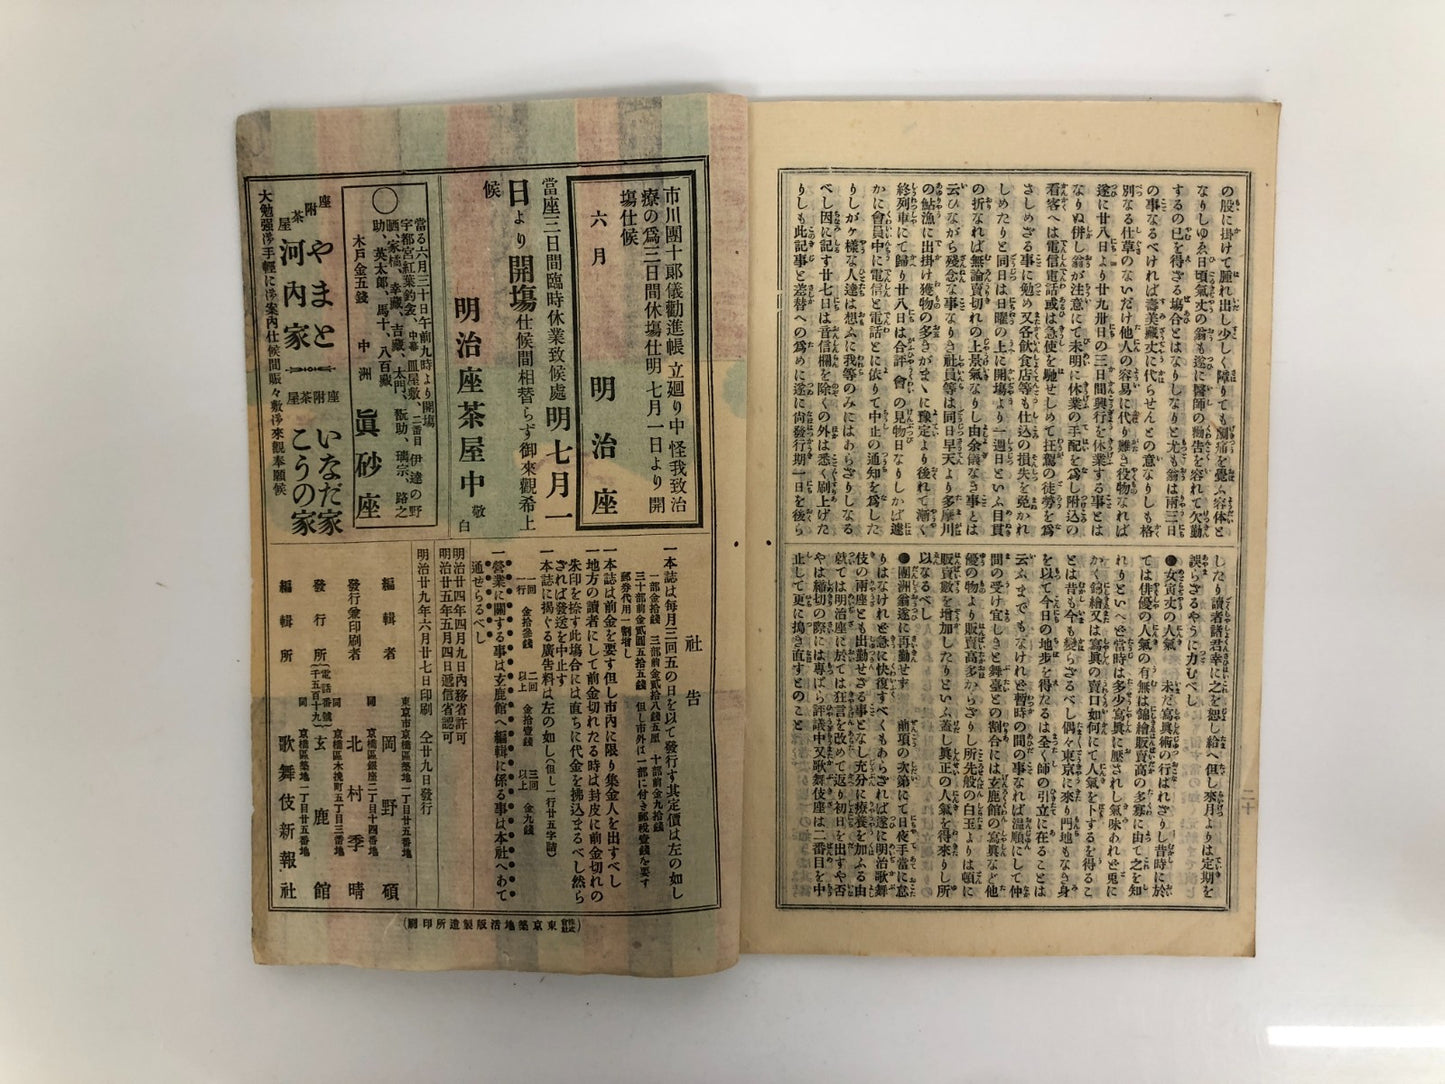 の股に掛けて腫れ出し少しく障りても劇痛を覺ふ容体と
なりしゆゑ日頃氣丈の翁も遂に醫師の勸告を容れて欠勤
するの已を得ざる塲合とはなりしなりと尤も翁は兩三日
の事なるべければ壽美藏丈に代らせんとの意なりしも格
別なる仕草のないだけ他人の容易に代り難き役物なれば
遂に廿八日より廿九卅日の三日間興行を休業する事とは
なりぬ併し翁が注意にて未明に休業の手配を爲し附込の
看客へは電信電話或は急使を馳せしめて抂駕の徒勞を爲
さしめざる事に勉め又各飮食店等も仕込の損失を免かれ
しめたりと同日は日曜の上に開塲より一週日といふ目貫
の折なれば無論賣切れの上景氣なりし由余儀なき事とは
云ひながら殘念な事なりき社員等は同日早天より多摩川
の鮎漁に出掛け獲物の多さがまゝに豫定より後れて漸く
終列車にて歸り廿八日は合評會の見物日なりしかば遽
かに會員中に電信と電話とに依りて中止の通知を爲した
りしがケ樣な人達は想ふに我等のみにはあらざりしなる
べし因に記す廿七日は音信欄を除くの外は悉く刷上げた
りしも此記事と差替への爲めに遂に尙發行期一日を後ら
したり讀者諸君幸に之を恕し給へ但し來月よりは定期を
誤らさるやうに力むべし
●女寅丈の人氣　未だ寫眞術の行はれざりし昔時に於
ては俳優の人氣の有無は錦繪販賣高の多寡に由て之を知
れりといへど當時は多少寫眞に壓されし氣味あれど兎に
かく錦繪又は寫眞の賣口如何にて人氣を卜するを得るこ
とは昔も今も變らざるべし偶々東京に來り門地もなき身
を以て今日の地步を得たるは全く師の引立に在ることは
云ふまでもなけれど暫時の間の事なれば溫順にして仲
間の受け宜しきと舞臺との割合には玄鹿館の寫眞など他
優の物より販賣高多からざりし所先般の白玉よりは頓に
販賣數を增加したりといふ蓋し眞正の人氣を得來りし所
以なるべし
●團洲翁遂に再勤せず　前項の次第にて日夜手當に怠
りはなけれど急に快復すべくもあらざれば遂に明治歌舞
伎の兩座とも出勤せざる事となし充分に療養を加ふる由
就ては明治座に於ては狂言を改めて返り初日を出すや否
やは締切の際には專ばら評議中又歌舞伎座は二番目を中
止して更に搗き直すとのこと
二十
市川團十郞儀勸進帳立廻り中怪我致治
療の爲三日間休塲仕明七月一日より開
塲仕候
六月　明治座
當座三日間臨時休業致候處明七月一
日より開塲仕候間相替らず御來觀希上
候
明治座茶屋中
敬白
◯當る六月三十日午前九時より開塲
宇都宮紅葉釣衾、中幕皿屋敷、二番目伊達の野
晒、家橘、幸藏、吉藏、太門、翫助、璃宗、路之
助、英太郞、馬十、八百藏
木戶金五錢　中洲　眞砂座
座附茶屋　やまと　河內家
座附茶屋　いなだ家　こうの家
大勉强淨手輕に淨案內仕候間賑々敷淨來觀奉願候
社告
一本誌は每月三回五の日を以て發行す其定價は左の如し
一部金拾錢　三部前金貳拾八錢五厘　十部前金九拾錢
三十部前金貳圓五拾五錢　但し市外は一部に付き郵稅壹錢を要す
郵券代用一割增し
一本誌は前金を要す但し市內に限り集金人を出すべし
一地方の讀者にして前金切れたる時は封皮に前金切れの
朱印を捺す此塲合には直ちに代金を拂込まるべし然ら
ざれば發送を中止す
一本誌に揭ぐる廣告料は左の如し(但し一行廿五字詰)
一回　一行　金拾參錢　二回以上　金拾壹錢　三回以上　金九錢
一營業に關する事は玄鹿館へ編輯に係る事は本社へあて
通せらるべし
明治廿四年四月九日內務省許可
明治廿五年五月四日遞信省認可
明治廿九年六月廿七日印刷　仝廿九日發行
編輯者　東京市京橋區築地一丁目廿五番地　岡野碩
發行兼印刷者　同京橋區銀座二丁目十四番地　北村季晴
發行所(電話番號千五百十九)　同京橋區木挽町五丁目三番地　玄鹿館
編輯所　同京橋區築地一丁目廿五番地　歌舞伎新報社
(株式會社東京築地活版製造所印刷)